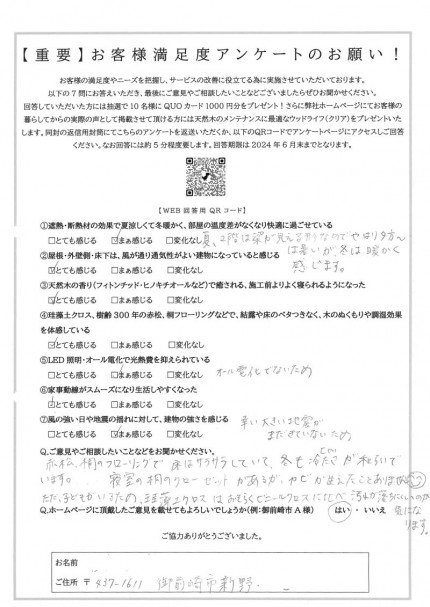 【重要】お客様満足度アンケートのお願い！
お客様の満足度やニーズを把握し、サービスの改善に役立てる為に実施させていただいております。
以下の7問にお答えいただき、最後にご意見やご相談したいことなどございましたらぜひお聞かせください。
回答していただいた方には抽選で10名様にQUOカード1000円分をプレゼント！さらに弊社ホームページにてお客様の
暮らしてからの実際の声として掲載させて頂ける方には天然木のメンテナンスに最適なウッドライフ(クリア)をプレゼントいた
します。同封の返信用封筒にてこちらのアンケートを返送いただくか、以下のQRコードでアンケートページにアクセスしご回答
ください。なお回答には約5分程度要します。回答期限は2024年6月末までとなります。
【WEB回答用QRコード】
①遮熱・断熱材の効果で夏涼しくて冬暖かく、部屋の温度差がなくなり快適に過ごせている
□とても感じる ☑まぁ感じる □変化なし
夏、2階は梁が見えるようなのでやはり夕方
は暑いが、冬は暖かく
感じます。
②屋根・外壁側・床下は、風が通り通気性がよい建物になっていると感じる
☑とても感じる □まぁ感じる □変化なし
③天然木の香り(フィトンチッド・ヒノキチオールなど)で癒される、施工前よりよく寝られるようになった
☑とても感じる □まぁ感じる □変化なし
④珪藻土クロス、樹齢300年の赤松、桐フローリングなどで、結露や床のベタつきなく、木のぬくもりや調湿効果
を体感している
☑とても感じる □まぁ感じる □変化なし
⑤LED照明・オール電化で光熱費を抑えられている
□とても感じる ☑まぁ感じる □変化なし
オール電化でないため
⑥家事動線がスムーズになり生活しやすくなった
☑とても感じる □まぁ感じる □変化なし
⑦風の強い日や地震の揺れに対して、建物の強さを感じる
□とても感じる ☑まぁ感じる □変化なし
幸い大きい地震が
まだきていないため
Q.ご意見やご相談したいことなどをお聞かせください。
赤松、桐のフローリングで床はサラサラしていて、冬も冷たさが和らいで
います。寝室の桐のクローゼットがあるが、カビが生えたことありません
ただ、子どもがいるため、珪藻土クロスはおそらくビニールクロスに比べ汚れが落ちにくいのが
気になります。
Q.ホームページに頂戴したご意見を載せてもよろしいでしょうか(例:御前崎市A様) はい・いいえ
ご協力ありがとうございました。
お名前
ご住所 〒437-1611 御前崎市新野